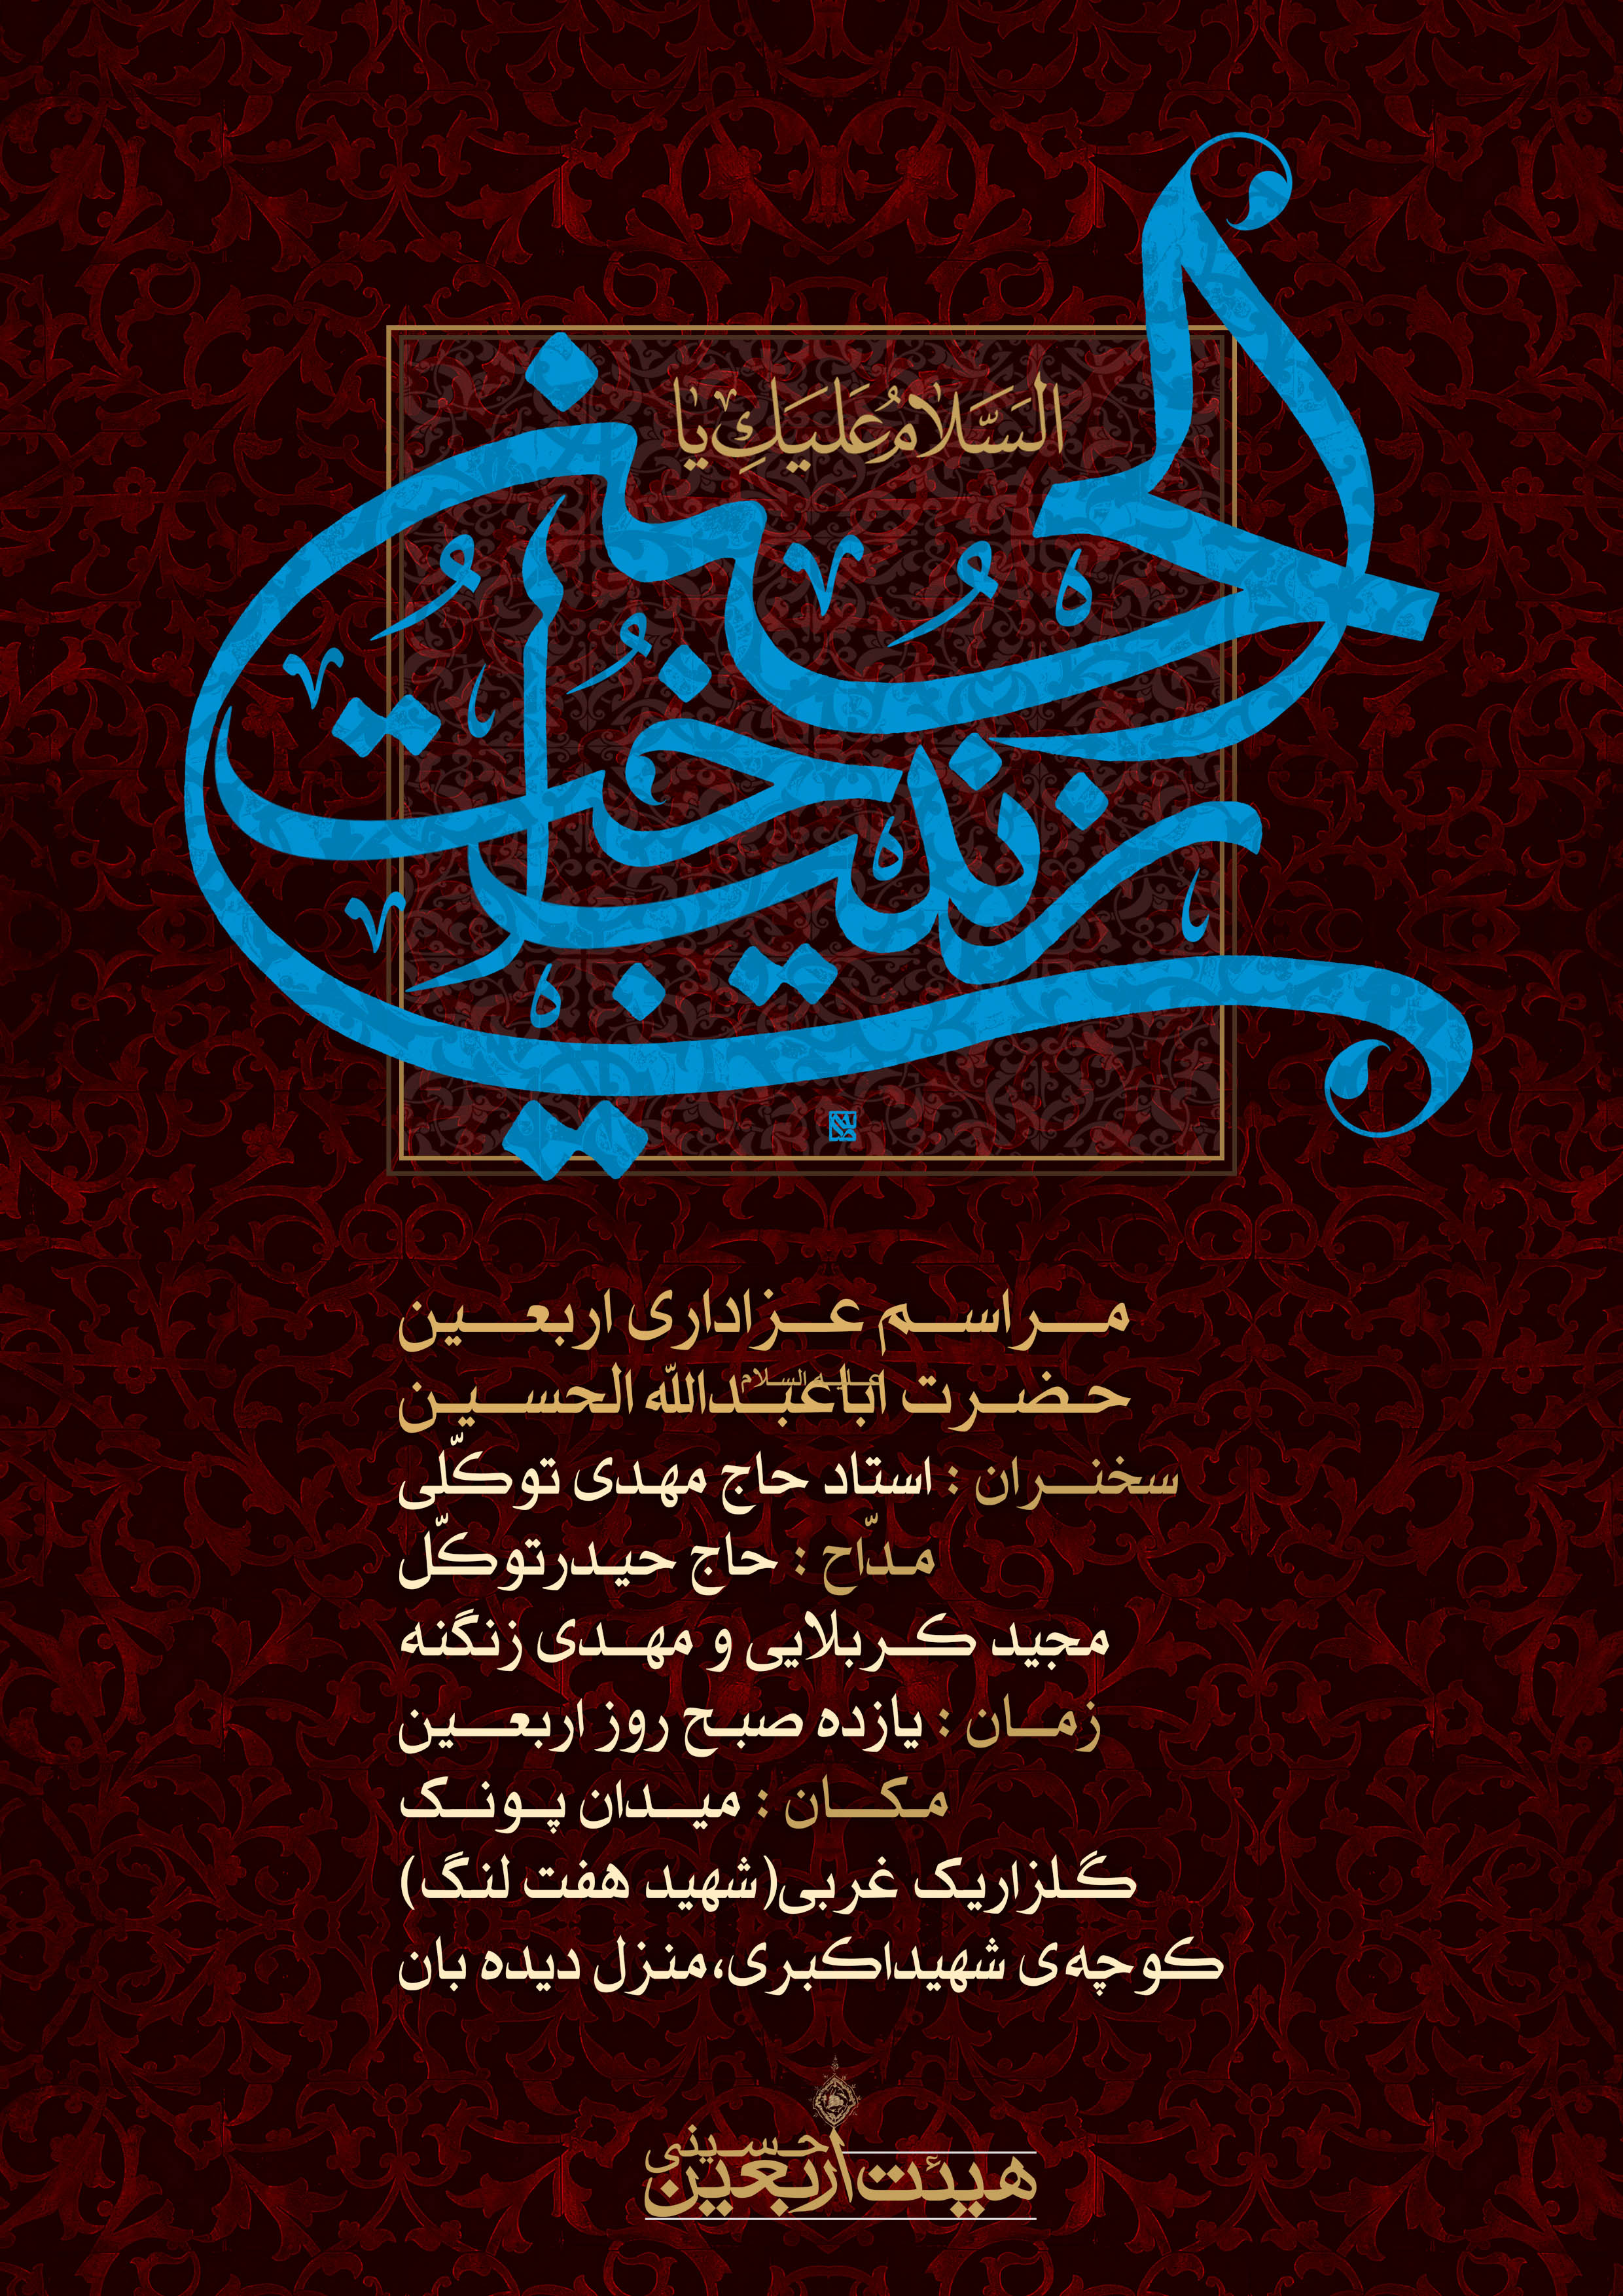 السَّلَامُ عَلَيَكِ يا
زينب اخت الحسين
مراسم عزاداری اربعین
حضرت اباعبدالله الحسین علیه السلام
سخنران : استاد حاج مهدی توکّلی
مدّاح : حاج حیدرتوکّل
مجید کربلایی و مهدی زنگنه
زمان : یازده صبح روز اربعین
مکان : میدان پونک
گلزاریک غربی(شهید هفت لنگ)
کوچه‌ی شهیداکبری، منزل دیده بان
هیئت اربعین حسینی